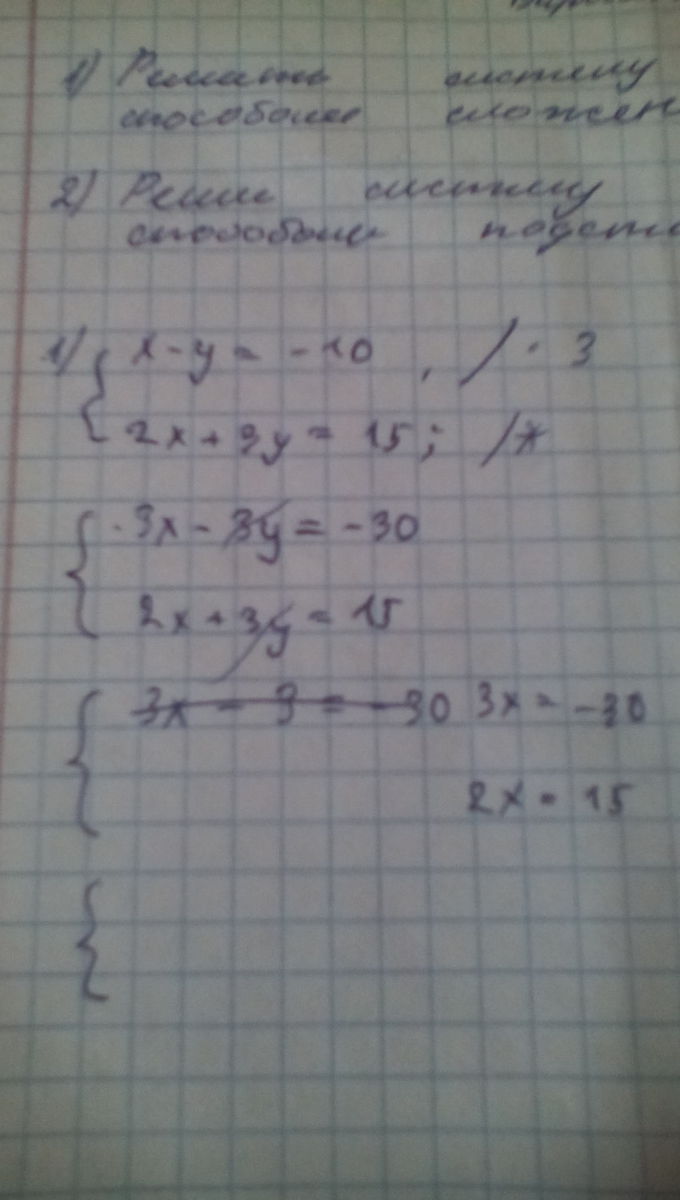 1) Решать систему
способом сложен
2) Реши систему
способом подста
1) { x - y = -10 , / · 3
2x + 3y = 15 ; / *
{ · 3x - 3y = -30
2x + 3y = 15
{ 3x - 3 = -30 3x = -30
2x = 15
{